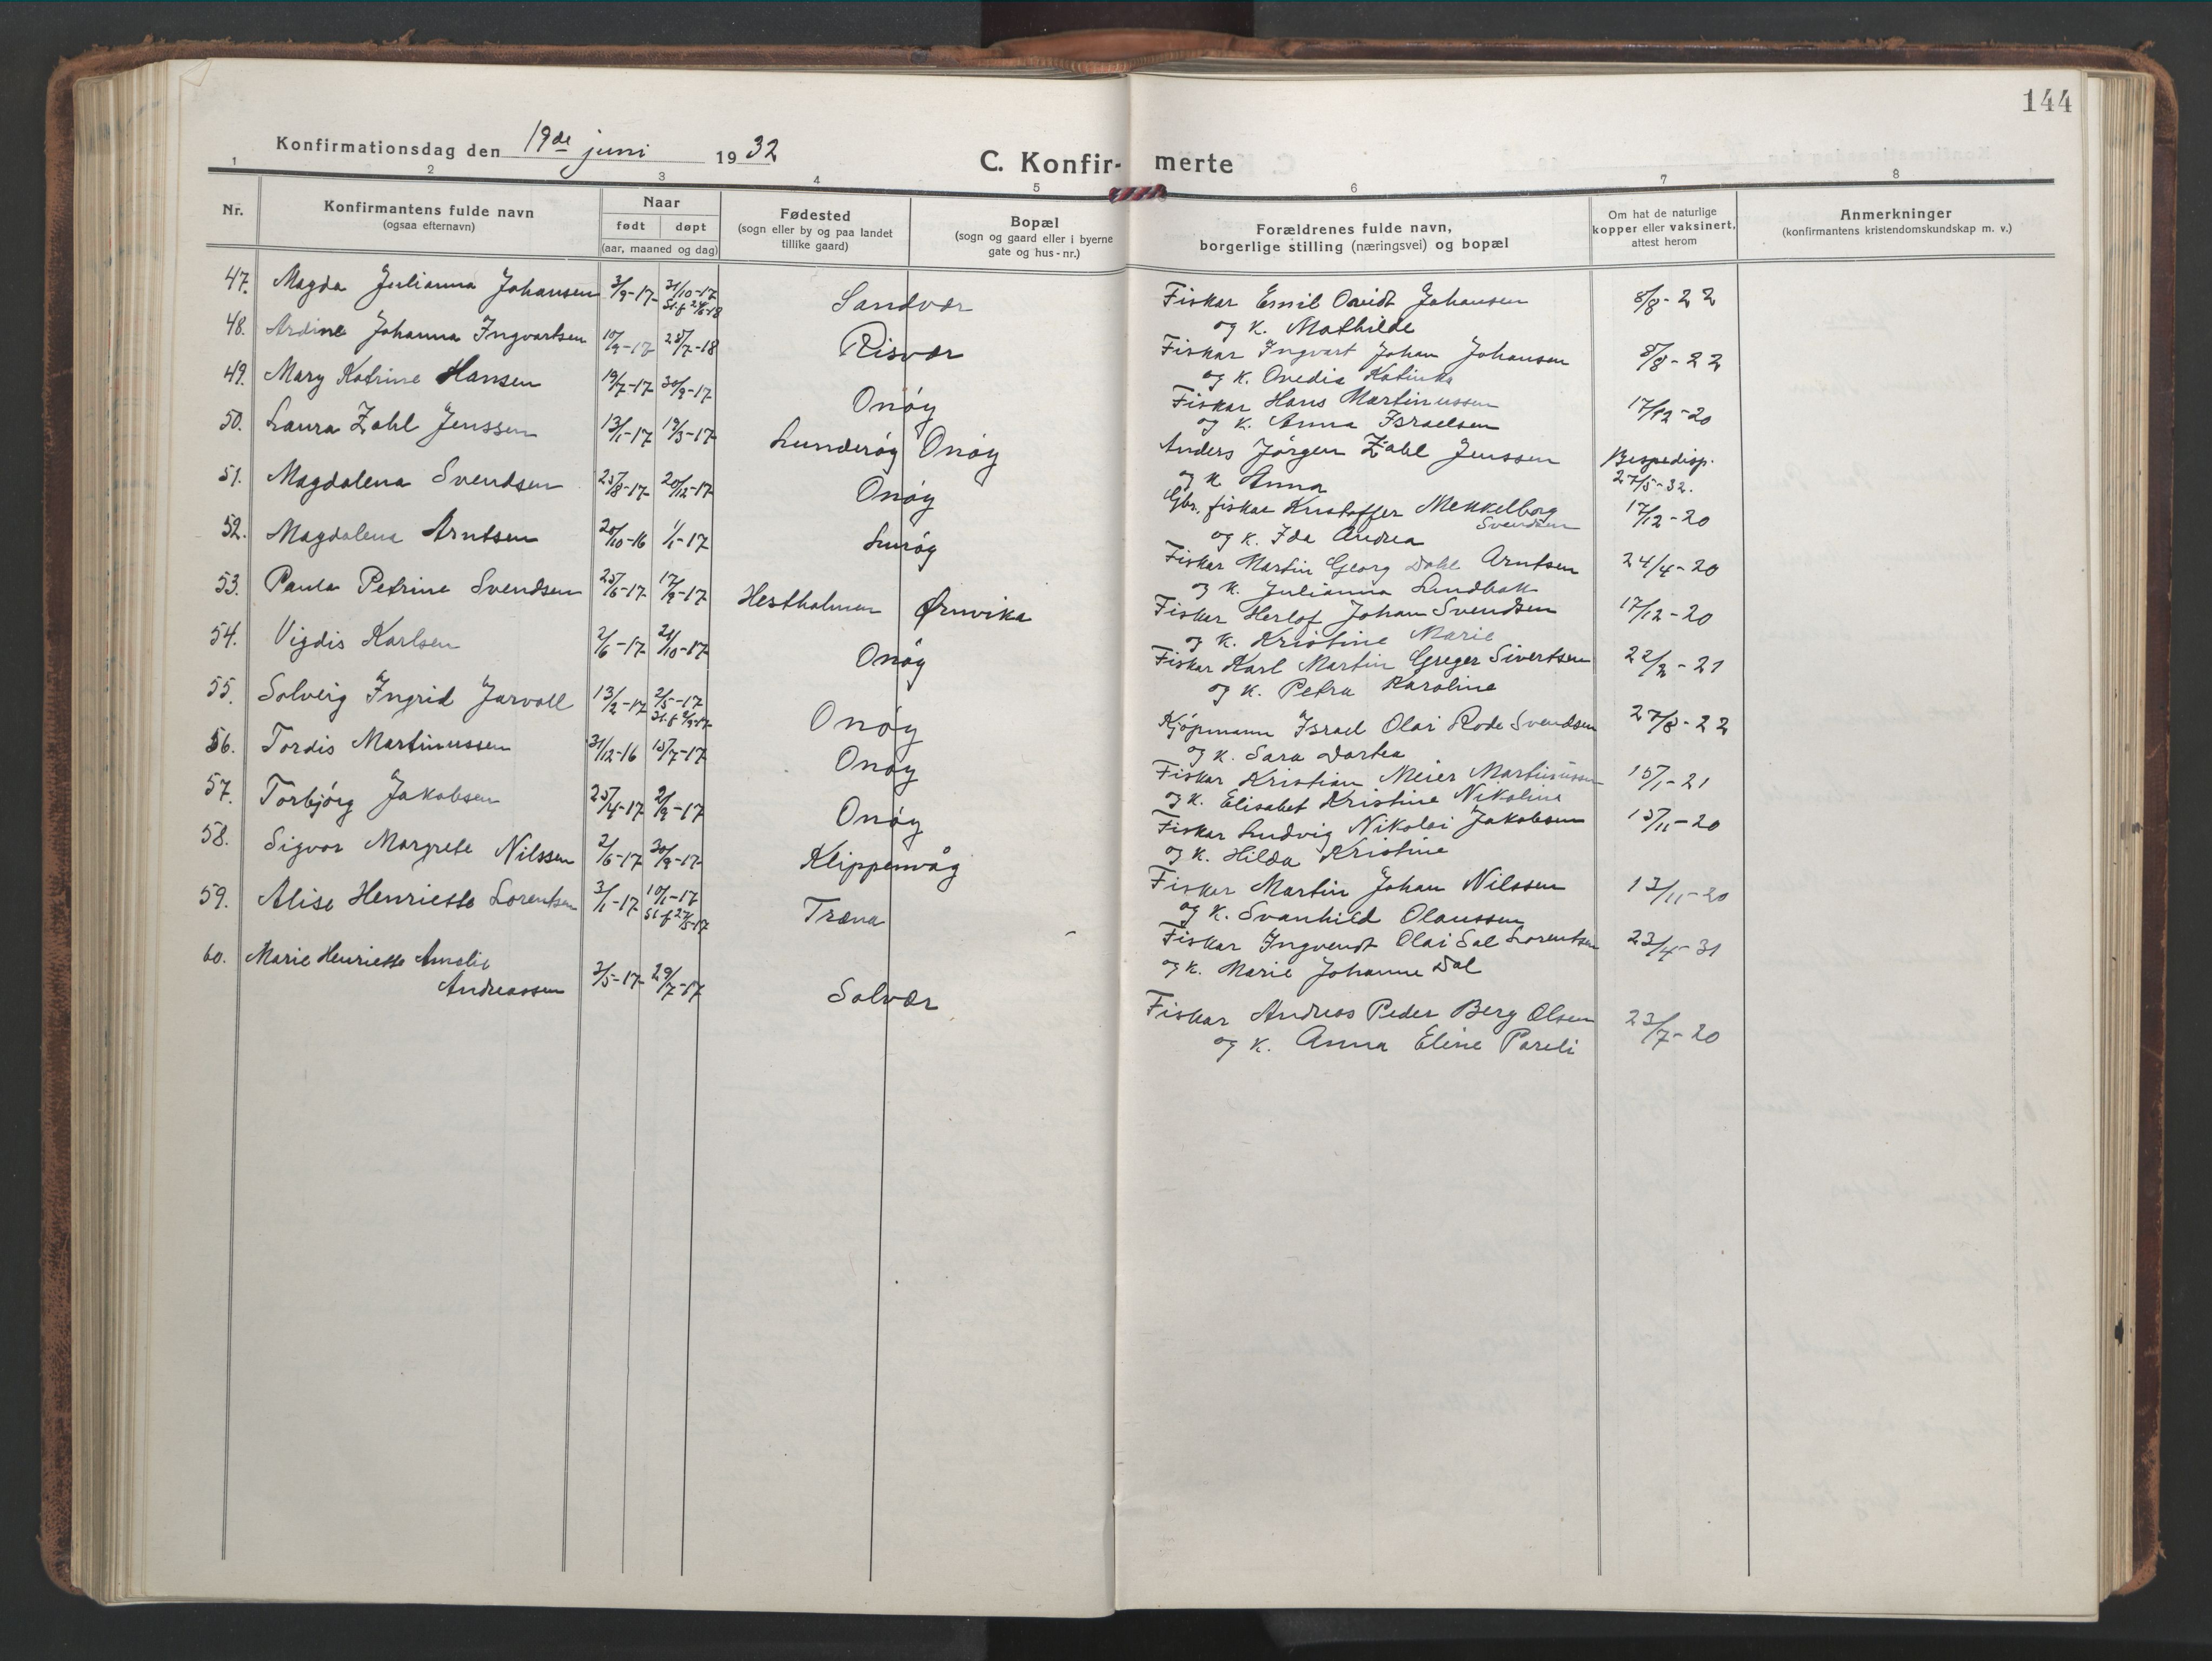 144
Konfirmationsdag den 19de juni 1932
C. Konfir- merte
1 2 3 4 5 6 7 8
Nr.
Konfirmantens fulde navn
(ogsaa efternavn)
Naar
født døpt
(aar, maaned og dag)
Fødested
(sogn eller by og paa landet
tillike gaard)
Bopæl
(sogn og gaard eller i byerne
gate og hus-nr.)
Forældrenes fulde navn,
borgerlige stilling (næringsvei) og bopæl
Om hat de naturlige
kopper eller vaksinert,
attest herom
Anmerkninger
(konfirmantens kristendomskundskap m. v.)
47. Magda Julianna Johansen 3/9-17 31/10-17 Sandvær Fiskar Emil Ovidt Johansen 8/8-22
St. f 24/6-18 og K. Mathilde
48. Ardine Johanna Ingvartsen 10/9-17 28/7-18 Risvær Fiskar Ingvart Johan Johansen 8/8-22
og K. Ovedia Katinka
49. Mary Katrine Hansen 19/7-17 30/9-17 Onöy Fiskar Hans Martinussen 17/12-20
og K. Anna Israelsen
50. Laura Zahl Jenssen 13/1-17 19/3-17 Lunderöy Onöy Anders Jörgen Zahl Jenssen Bispedisp.
og K. Anna 27/5-32.
51. Magdalena Svendsen 25/8-17 20/12-17 Onöy Gbr. fiskar Kristoffer Mekkelborg 17/12-20
Svendsen
og K. Ida Andrea
52. Magdalena Arntsen 20/10-16 1/1-17 Luröy Fiskar Martin Georg Dahl Arntsen 24/4-20
og K. Julianna Lundbak
53. Paula Petrine Svendsen 25/6-17 17/9-17 Hestholmen Ørnvika Fiskar Herlof Johan Svendsen 17/12-20
og K. Kristine Marie
54. Vigdis Karlsen 2/6-17 21/10-17 Onöy Fiskar Karl Martin Greger Sivertsen 22/2-21
og K. Petra Karoline
55. Solveig Ingrid Jarvoll 13/2-17 2/5-17 Onöy Kjöpmann Israel Olai Rode Svendsen 27/8-22
St. f 2/9-17 og K. Sara Dortea
56. Tordis Martinussen 31/12-16 15/7-17 Onöy Fiskar Kristian Meier Martinussen 15/1-21
og K. Elisabet Kristine Nikoline
57. Torbjörg Jakobsen 25/4-17 2/9-17 Onöy Fiskar Ludvig Nikolai Jakobsen 15/11-20
og K. Hilda Kristine
58. Sigvor Margrete Nilssen 2/6-17 30/9-17 Klippenvåg Fiskar Martin Johan Nilssen 13/11-20
og K. Svanhild Olaussen
59. Alise Henriette Lorentsen 3/1-17 10/1-17 Træna Fiskar Ingvendt Olai Sal Lorentsen 23/4-31
St. f 27/5-17 og K. Marie Johanne Dal
60. Marie Henriette Amalie
Andreassen 3/5-17 29/7-17 Solvær Fiskar Andreas Peder Berg Olsen 23/7-20
og K. Anna Eline Pareli